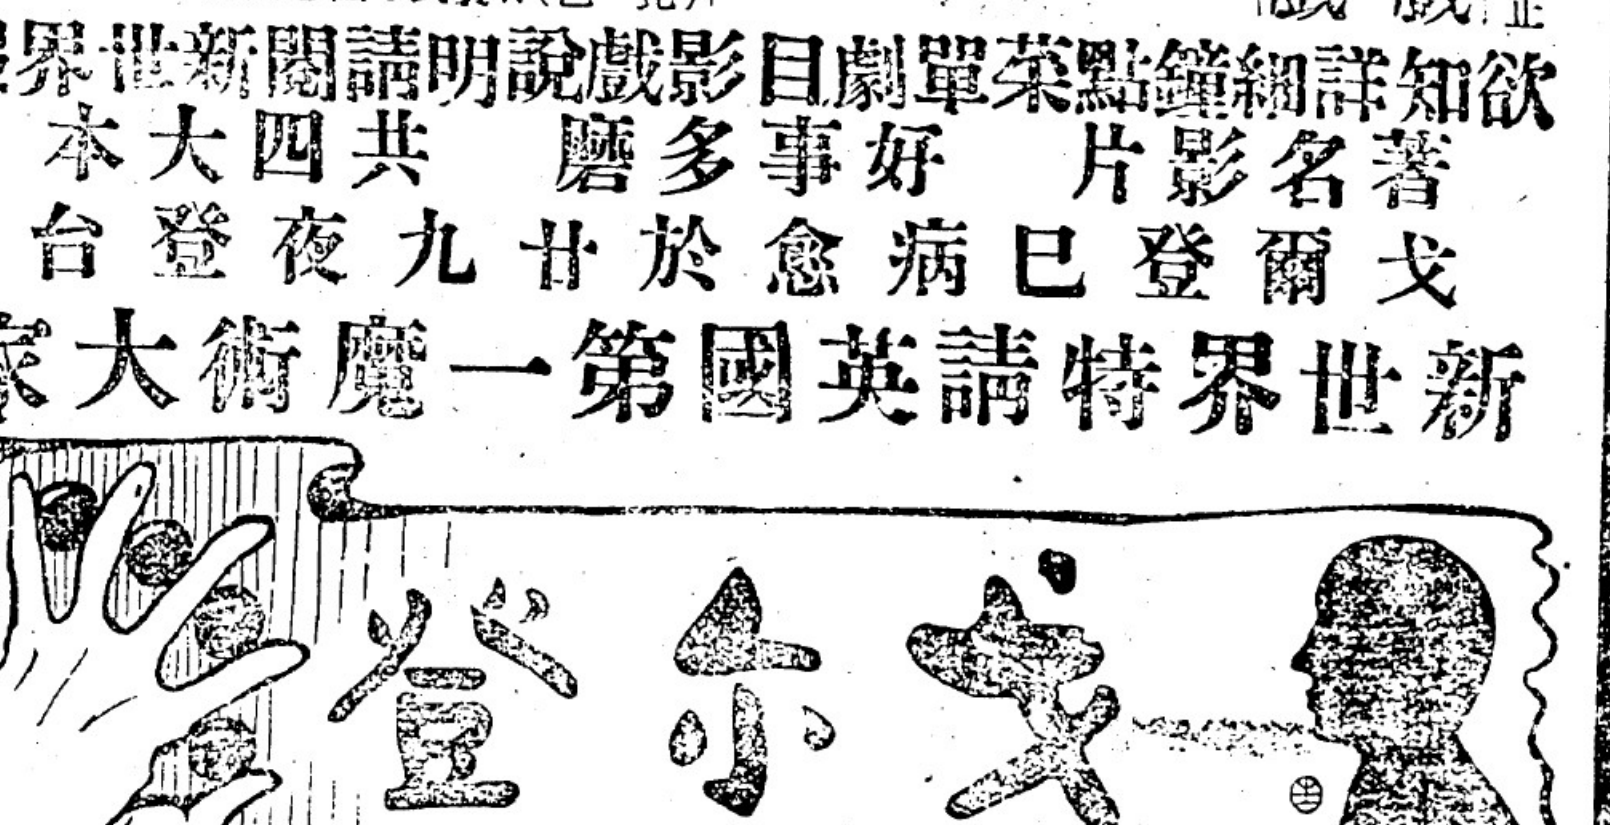 欲知詳細鐘點菜單劇目影戲說明請閱新世界
著名影片 好事多磨 共四大本
戈爾登巳病愈於廿九夜登台
新世界特請英國第一魔術大家
戈尔登